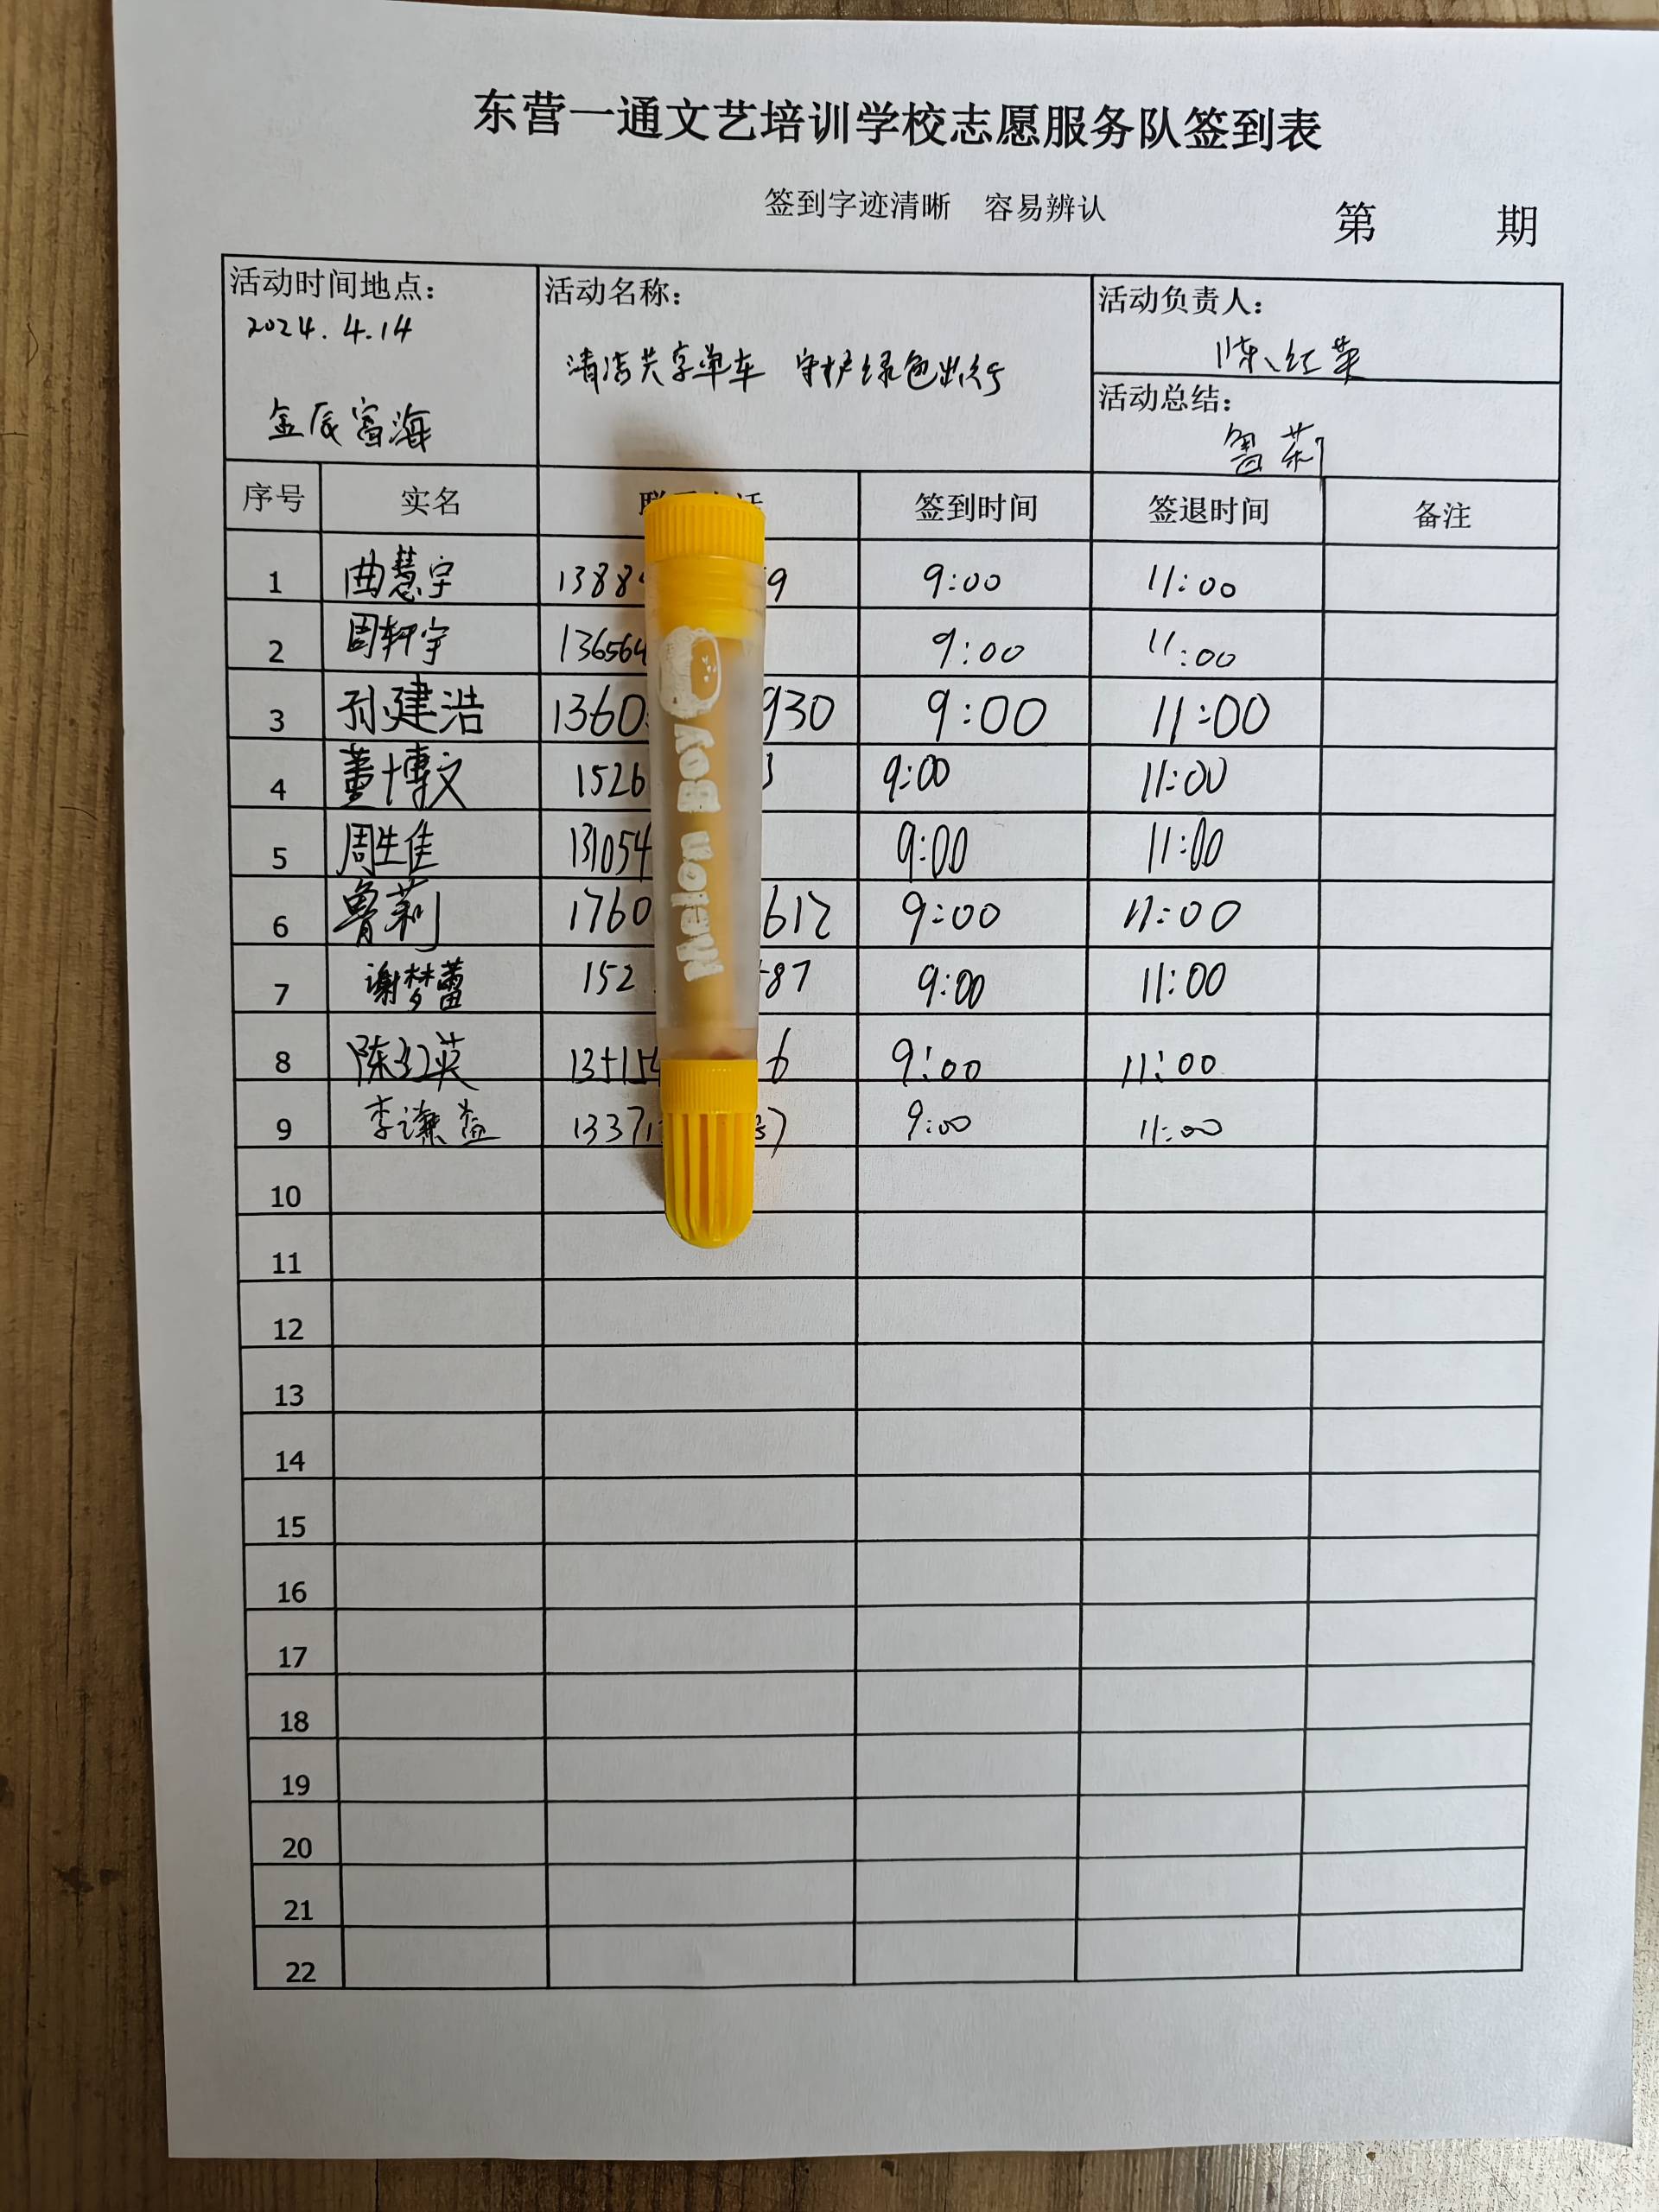 东营一通文艺培训学校志愿服务队签到表
签到字迹清晰 容易辨认
第 期
活动时间地点：
2024.4.14
金辰富海
活动名称：
清洁共享单车 守护绿色出行
活动负责人：
陈红英
活动总结：
鲁莉
序号 实名 签到时间 签退时间 备注
1 曲慧宇 1388 9 9:00 11:00
2 周轩宇 136564 9:00 11:00
3 孙建浩 1360 930 9:00 11:00
4 董博文 1526 3 9:00 11:00
5 周生佳 131054 9:00 11:00
6 鲁莉 1760 612 9:00 11:00
7 谢梦蕾 152 87 9:00 11:00
8 陈红英 13515 6 9:00 11:00
9 李谦益 1337 7 9:00 11:00
10
11
12
13
14
15
16
17
18
19
20
21
22
Melon Boy